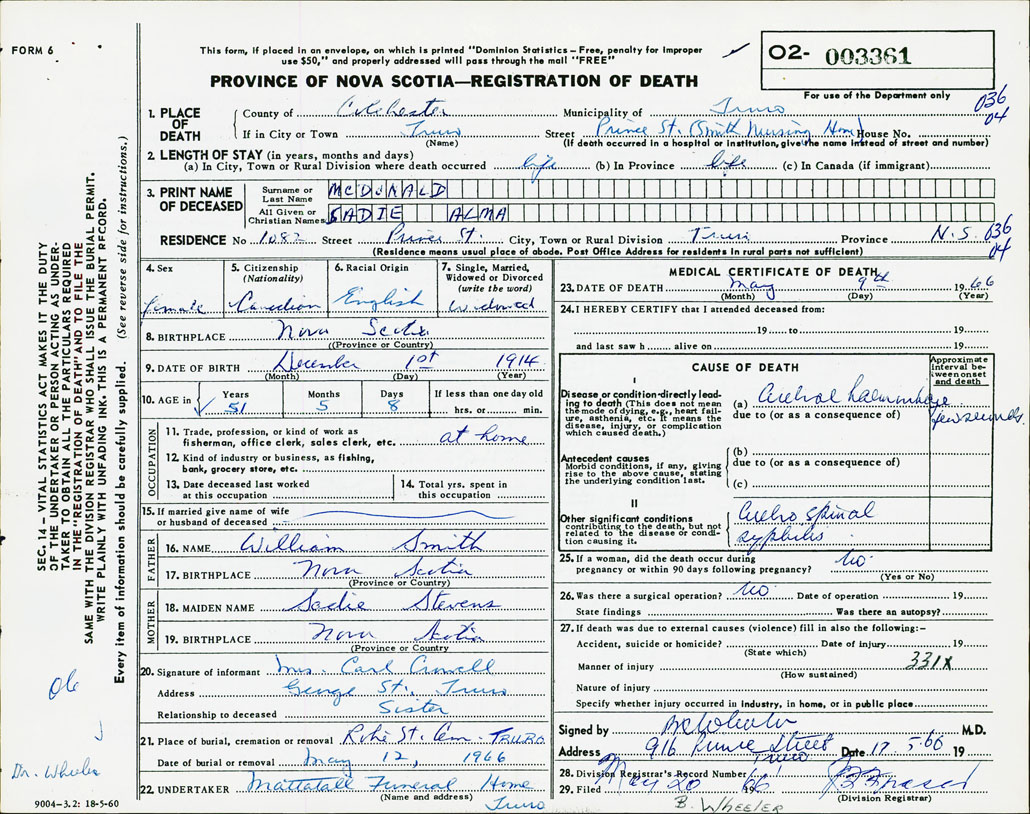 FORM 6
This form, if placed in an envelope, on which is printed "Dominion Statistics – Free, penalty for improper
use $50," and properly addressed will pass through the mail "FREE"
PROVINCE OF NOVA SCOTIA—REGISTRATION OF DEATH
02- 003361
For use of the Department only
036
04
1. PLACE OF DEATH
County of Colchester Municipality of Truro
If in City or Town Truro Street Prince St. (Smith Nursing Home) House No.
(Name) (If death occurred in a hospital or institution, give the name instead of street and number)
2. LENGTH OF STAY (in years, months and days)
(a) In City, Town or Rural Division where death occurred life (b) In Province life (c) In Canada (if immigrant)
3. PRINT NAME OF DECEASED
Surname or Last Name McDONALD
All Given or Christian Names SADIE ALMA
RESIDENCE No 1082 Street Prince St. City, Town or Rural Division Truro Province N.S. 036
04
(Residence means usual place of abode. Post Office Address for residents in rural parts not sufficient)
4. Sex
female
5. Citizenship
(Nationality)
Canadian
6. Racial Origin
English
7. Single, Married,
Widowed or Divorced
(write the word)
Widowed
8. BIRTHPLACE Nova Scotia
(Province or Country)
9. DATE OF BIRTH December 1st 1914
(Month) (Day) (Year)
10. AGE in
Years Months Days If less than one day old
51 5 8 hrs. or min.
OCCUPATION
11. Trade, profession, or kind of work as
fisherman, office clerk, sales clerk, etc. at home
12. Kind of industry or business, as fishing,
bank, grocery store, etc.
13. Date deceased last worked
at this occupation
14. Total yrs. spent in
this occupation
15. If married give name of wife
or husband of deceased
FATHER
16. NAME William Smith
17. BIRTHPLACE Nova Scotia
(Province or Country)
MOTHER
18. MAIDEN NAME Sadie Stevens
19. BIRTHPLACE Nova Scotia
(Province or Country
20. Signature of informant Mrs. Carl
Address George St., Truro
Relationship to deceased Sister
21. Place of burial, cremation or removal Robie St. Cem. TRURO
Date of burial or removal May 12, 1966
22. UNDERTAKER Mattatall Funeral Home
(Name and address) Truro
MEDICAL CERTIFICATE OF DEATH
23. DATE OF DEATH May 9th 1966
(Month) (Day) (Year)
24. I HEREBY CERTIFY that I attended deceased from:
19 to 19
and last saw h alive on 19
CAUSE OF DEATH
Approximate
interval be-
tween onset
and death
I
Disease or condition directly lead-
ing to death (This does not mean
the mode of dying, e.g., heart fail-
ure, asthenia, etc. It means the
disease, injury, or complication
which caused death.)
(a) Cerebral haemorrhage
few seconds.
due to (or as a consequence of)
Antecedent causes
Morbid conditions, if any, giving
rise to the above cause, stating
the underlying condition last.
(b)
due to (or as a consequence of)
(c)
II
Other significant conditions
contributing to the death, but not
related to the disease or condi-
tion causing it.
Cerebro spinal
syphilis
25. If a woman, did the death occur during
pregnancy or within 90 days following pregnancy? no
(Yes or No)
26. Was there a surgical operation? no Date of operation 19
State findings Was there an autopsy?
27. If death was due to external causes (violence) fill in also the following:–
Accident, suicide or homicide? Date of injury 19
(State which)
Manner of injury 331X
(How sustained)
Nature of injury
Specify whether injury occurred in industry, in home, or in public place
Signed by M.D.
Address 916 Prince Street Date 17 5.66 19
Truro
28. Division Registrar's Record Number
29. Filed May 20 1966
(Division Registrar)
B. WHEELER
SEC. 14 – VITAL STATISTICS ACT MAKES IT THE DUTY
OF THE UNDERTAKER OR PERSON ACTING AS UNDER-
TAKER TO OBTAIN ALL THE PARTICULARS REQUIRED
IN THE "REGISTRATION OF DEATH" AND TO FILE THE
SAME WITH THE DIVISION REGISTRAR WHO SHALL ISSUE THE BURIAL PERMIT.
WRITE PLAINLY WITH UNFADING INK. THIS IS A PERMANENT RECORD.
Every item of information should be carefully supplied. (See reverse side for instructions.)
Dr. Wheeler
9004-3.2: 18-5-60